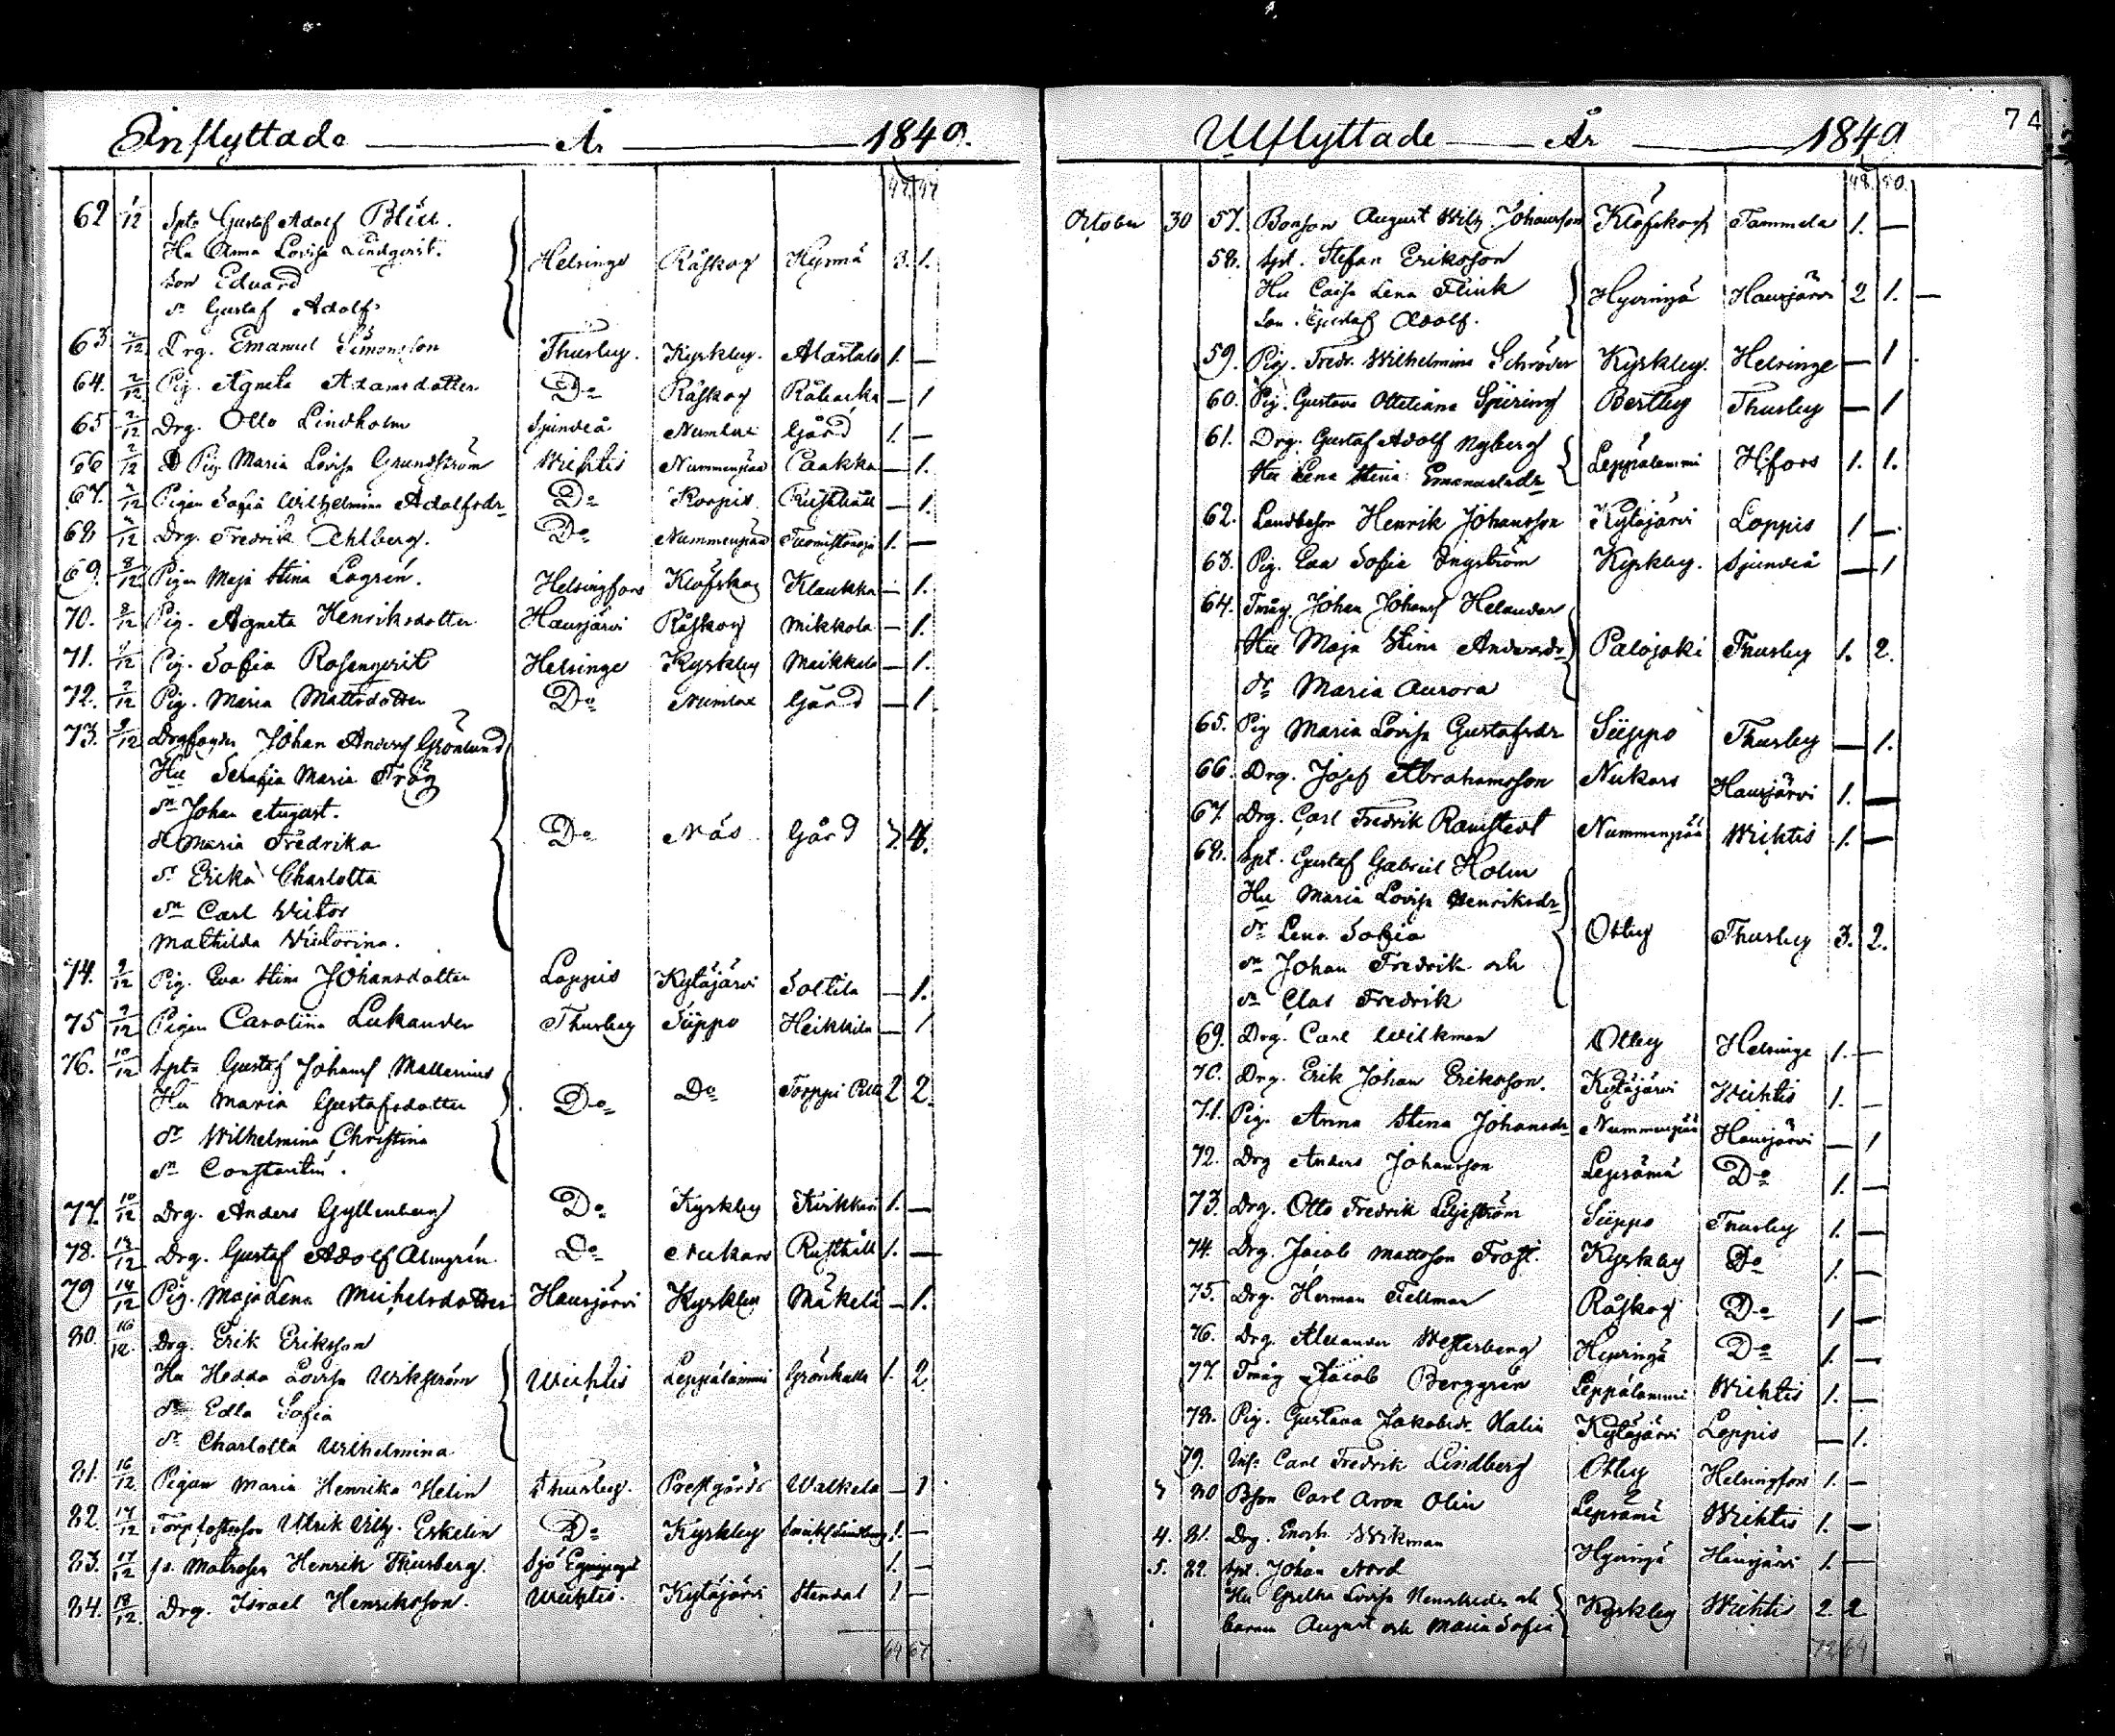 Inflyttade År 1849.
47. 47
62 1/12 Spt. Gustaf Adolf Blui.
Hu Anna Lovisa Lindqvist.
Son Eduard Helsinge Råskog Hynnä 3. 1.
Sn Gustaf Adolf
63 2/12 Drg. Emanuel Simonsson Thusby. Kyrkby. Alastalo 1. —
64. 2/12 Pig. Agneta Adamsdotter Do Råskog Råbacka — 1
65 2/12 Drg. Otto Lindholm Sjundeå Numlax Gård 1. —
66 2/12 Pig. Maria Lovisa Grundström Wichtis Nummenpää Caakka — 1.
67. 2/12 Pigan Sofia Wilhelmina Adolfsdr Do Korpis Rusthåll — 1.
68 2/12 Drg. Fredrik Ahlberg. Do Nummenpää 1. —
69. 8/12 Pigan Maja Stina Lagrén. Helsingfors Klöfskog Klaukka — 1.
70. 8/12 Pig. Agneta Henriksdotter Hausjärvi Råskog Mikkola — 1.
71. Pig. Sofia Rosenqvist Helsinge Kyrkby Meikkala — 1.
72. 9/12 Pig. Maria Mattsdotter Do Numlax Gård — 1
73. 9/12 Johan Anders Grönlund
Hu Serafia Maria Tråg
Sn Johan August.
Dr Maria Fredrika Do Näs Gård 3. 4.
Dr Erika Charlotta
Sn Carl Victor
Mathilda Victorina.
74. 9/12 Pig. Eva Stina Johansdotter Loppis Kytäjärvi Soltila — 1.
75 9/12 Pigan Carolina Lukander Thusby Süppo Heikkila — 1
76. 10/12 Spt. Gustaf Johans Mallenius
Hu Maria Gustafsdotter Do Do Torppi 2 2.
Dr Wilhelmina Christina
Sn Constantin.
77. 10/12 Drg. Anders Gyllenberg Do Kyrkby Kirkkari 1. —
78. 13/12 Drg. Gustaf Adolf Almgrén Do Nukars Rusthåll 1. —
79 14/12 Pig. Maja Lena Michelsdotter Hausjärvi Kyrkby Mäkelä — 1.
80. 16/12. Drg. Erik Eriksson
Hu Hedda Lovisa Wikström Wichtis Leppälammi Grönkulla 1. 2.
Dr Edla Sofia
Dr Charlotta Wilhelmina
81. 16/12 Pigan Maria Henrika Helin Thusby. Prestgårds Walkela — 1
82. 17/12 Ulrik Wilh. Eskelin Do Kyrkby 1. —
83. 17/12 Matrosen Henrik Thusberg. Sjö 1. —
84. 18/12. Drg. Israel Henriksson. Wichtis. Kytäjärvi Stendal 1 —
64 67
74
Utflyttade År 1849
48. 50.
October 30 57. Bonson August Wilh. Johansson Klöfskog Tammela 1. —
58. Spt. Stefan Eriksson
Hu Caisa Lena Flink Hyvingä Hausjärvi 2 1. —
Son Gustaf Adolf.
59. Pig. Fredr. Wilhelmina Schröder Kyrkby. Helsinge — 1
60. Pig. Gustava Ottiliana Spüring Bertby Thusby — 1
61. Drg. Gustaf Adolf Nyberg
Hu Lena Stina Emanuelsdr Leppälammi H:fors 1. 1.
62. Landbson Henrik Johansson Kytäjärvi Loppis 1 —.
63. Pig. Eva Sofia Ingström Kyrkby. Sjundeå — 1
64. Tmåg Johan Johans Helander
Hu Maja Stina Andersdr Palojoki Thusby 1. 2.
Dr Maria Aurora
65. Pig Maria Lovisa Gustafsdr Süppo Thusby — 1.
66. Drg. Josef Abrahamsson Nukars Hausjärvi 1. —
67. Drg. Carl Fredrik Ramstedt Nummenpää Wichtis 1. —
68. Spt. Gustaf Gabriel Holm
Hu Maria Lovisa Henriksdr
Dr Lena Sofia Ottby Thusby 3. 2.
Sn Johan Fredrik och
Sn Clas Fredrik
69. Drg. Carl Wilkman Ottby Helsinge 1. —
70. Drg. Erik Johan Eriksson. Kytäjärvi Wichtis 1. —
71. Pig. Anna Stina Johansdr Nummenpää Hausjärvi — 1
72. Drg Anders Johansson Lepsämä Do 1. —
73. Drg. Otto Fredrik Liljeström Süppo Thusby 1. —
74. Drg. Jacob Mattsson Frost. Kyrkby Do 1. —
75. Drg. Herman Fellman Råskog Do 1 —
76. Drg. Alexander Westerberg Hyvingä Do 1. —
77. Tmåg Jacob Berggrén Leppälammi Wichtis 1. —
78. Pig. Gustava Jakobsdr Malin Kytäjärvi Loppis — 1.
79. Inh. Carl Fredrik Lindberg Ottby Helsingfors 1. —
3 80 Bson Carl Aron Olin Lepsämä Wichtis 1. —
4. 81. Drg. Enoch Wikman Hyvingä Hausjärvi 1. —
5. 82. Spt. Johan Nord
Hu Gretha Lovisa Henriksdr och Kyrkby Wichtis 2. 2
barnen August och Maria Sofia
72 64